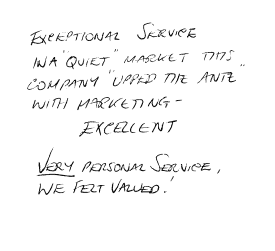 EXCEPTIONAL SERVICE
IN A "QUIET" MARKET THIS
COMPANY "UPPED THE ANTE"
WITH MARKETING -
EXCELLENT
VERY PERSONAL SERVICE,
WE FELT VALUED!